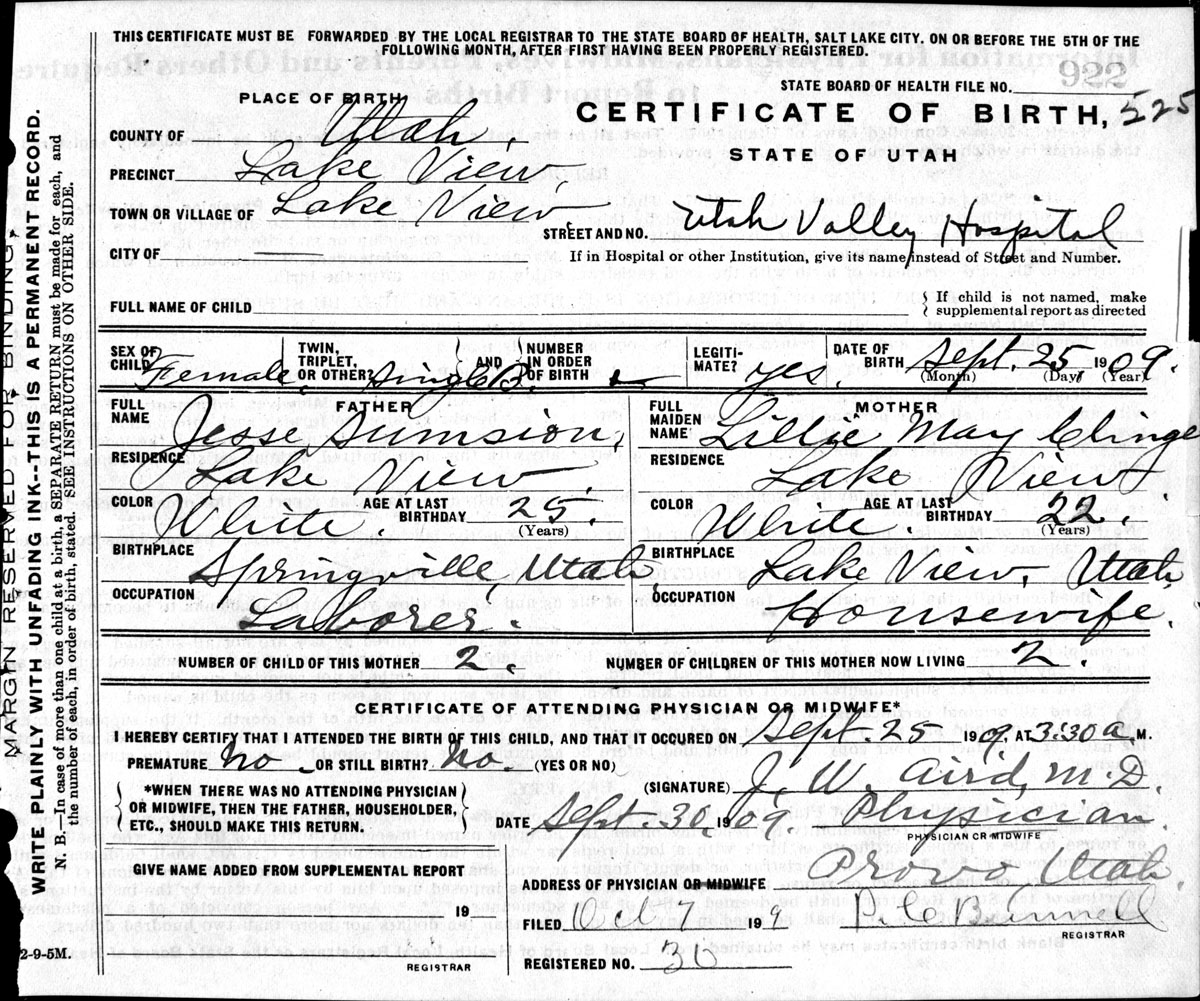 THIS CERTIFICATE MUST BE FORWARDED BY THE LOCAL REGISTRAR TO THE STATE BOARD OF HEALTH, SALT LAKE CITY, ON OR BEFORE THE 5TH OF THE
FOLLOWING MONTH, AFTER FIRST HAVING BEEN PROPERLY REGISTERED.
922
STATE BOARD OF HEALTH FILE NO.
PLACE OF BIRTH
CERTIFICATE OF BIRTH, 525
STATE OF UTAH
COUNTY OF Utah.
PRECINCT Lake View,
TOWN OR VILLAGE OF Lake View
STREET AND NO. Utah Valley Hospital
CITY OF
If in Hospital or other Institution, give its name instead of Street and Number.
FULL NAME OF CHILD
{ If child is not named, make
supplemental report as directed
SEX OF CHILD Female.
TWIN, TRIPLET, OR OTHER? Single } AND { NUMBER IN ORDER OF BIRTH
LEGITIMATE? yes.
DATE OF BIRTH Sept. 25, 1909.
(Month) (Day) (Year)
FATHER
FULL NAME Jesse Sumsion,
RESIDENCE Lake View.
COLOR White. AGE AT LAST BIRTHDAY 25. (Years)
BIRTHPLACE Springville Utah
OCCUPATION Laborer.
MOTHER
FULL MAIDEN NAME Lillie May Clinge
RESIDENCE Lake View,
COLOR White. AGE AT LAST BIRTHDAY 22. (Years)
BIRTHPLACE Lake View, Utah
OCCUPATION Housewife.
NUMBER OF CHILD OF THIS MOTHER 2. NUMBER OF CHILDREN OF THIS MOTHER NOW LIVING 2.
CERTIFICATE OF ATTENDING PHYSICIAN OR MIDWIFE*
I HEREBY CERTIFY THAT I ATTENDED THE BIRTH OF THIS CHILD, AND THAT IT OCCURED ON Sept. 25 1909, AT 3:30 a. M.
PREMATURE No - OR STILL BIRTH? No. (YES OR NO)
(SIGNATURE) J. W. Aird, M.D.
{ *WHEN THERE WAS NO ATTENDING PHYSICIAN
OR MIDWIFE, THEN THE FATHER, HOUSEHOLDER,
ETC., SHOULD MAKE THIS RETURN. }
DATE Sept. 30, 1909. Physician.
PHYSICIAN OR MIDWIFE
GIVE NAME ADDED FROM SUPPLEMENTAL REPORT
19
REGISTRAR
ADDRESS OF PHYSICIAN OR MIDWIFE Provo, Utah.
FILED Oct 7 1909
REGISTRAR
REGISTERED NO. 36
2-9-5M.
MARGIN RESERVED FOR BINDING.
WRITE PLAINLY WITH UNFADING INK--THIS IS A PERMANENT RECORD.
N. B.—In case of more than one child at a birth, a SEPARATE RETURN must be made for each, and
the number of each, in order of birth, stated. SEE INSTRUCTIONS ON OTHER SIDE.